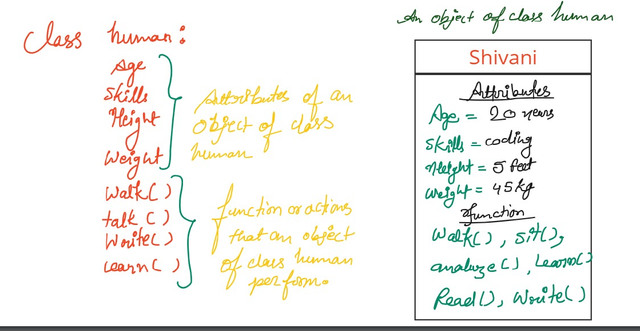 Class human:
Age
Skills
Height
Weight
Walk()
talk()
Write()
Learn()
Attributes of an
object of class
human
function or actions
that an object
of class human
perform.
An object of class human
Shivani
Attributes
Age = 20 years
Skills = coding
Height = 5 feet
Weight = 45kg
function
Walk(), Sit(),
analyze(), Learn()
Read(), Write()